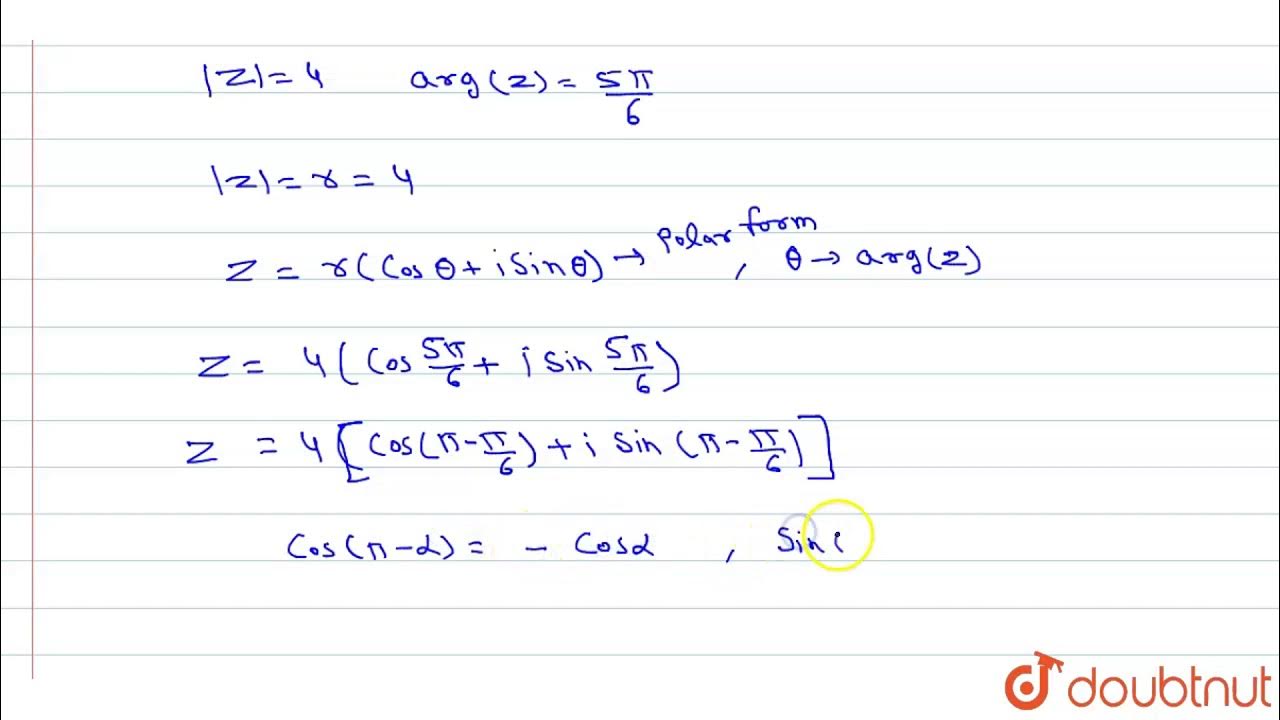 |z| = 4 arg(z) = 5π/6
|z| = r = 4
z = r(Cos θ + i Sin θ) → Polar form , θ → arg(z)
z = 4(Cos 5π/6 + i Sin 5π/6)
z = 4[Cos(π-π/6) + i Sin (π-π/6)]
Cos(π-α) = - Cosα , Sin(
doubtnut